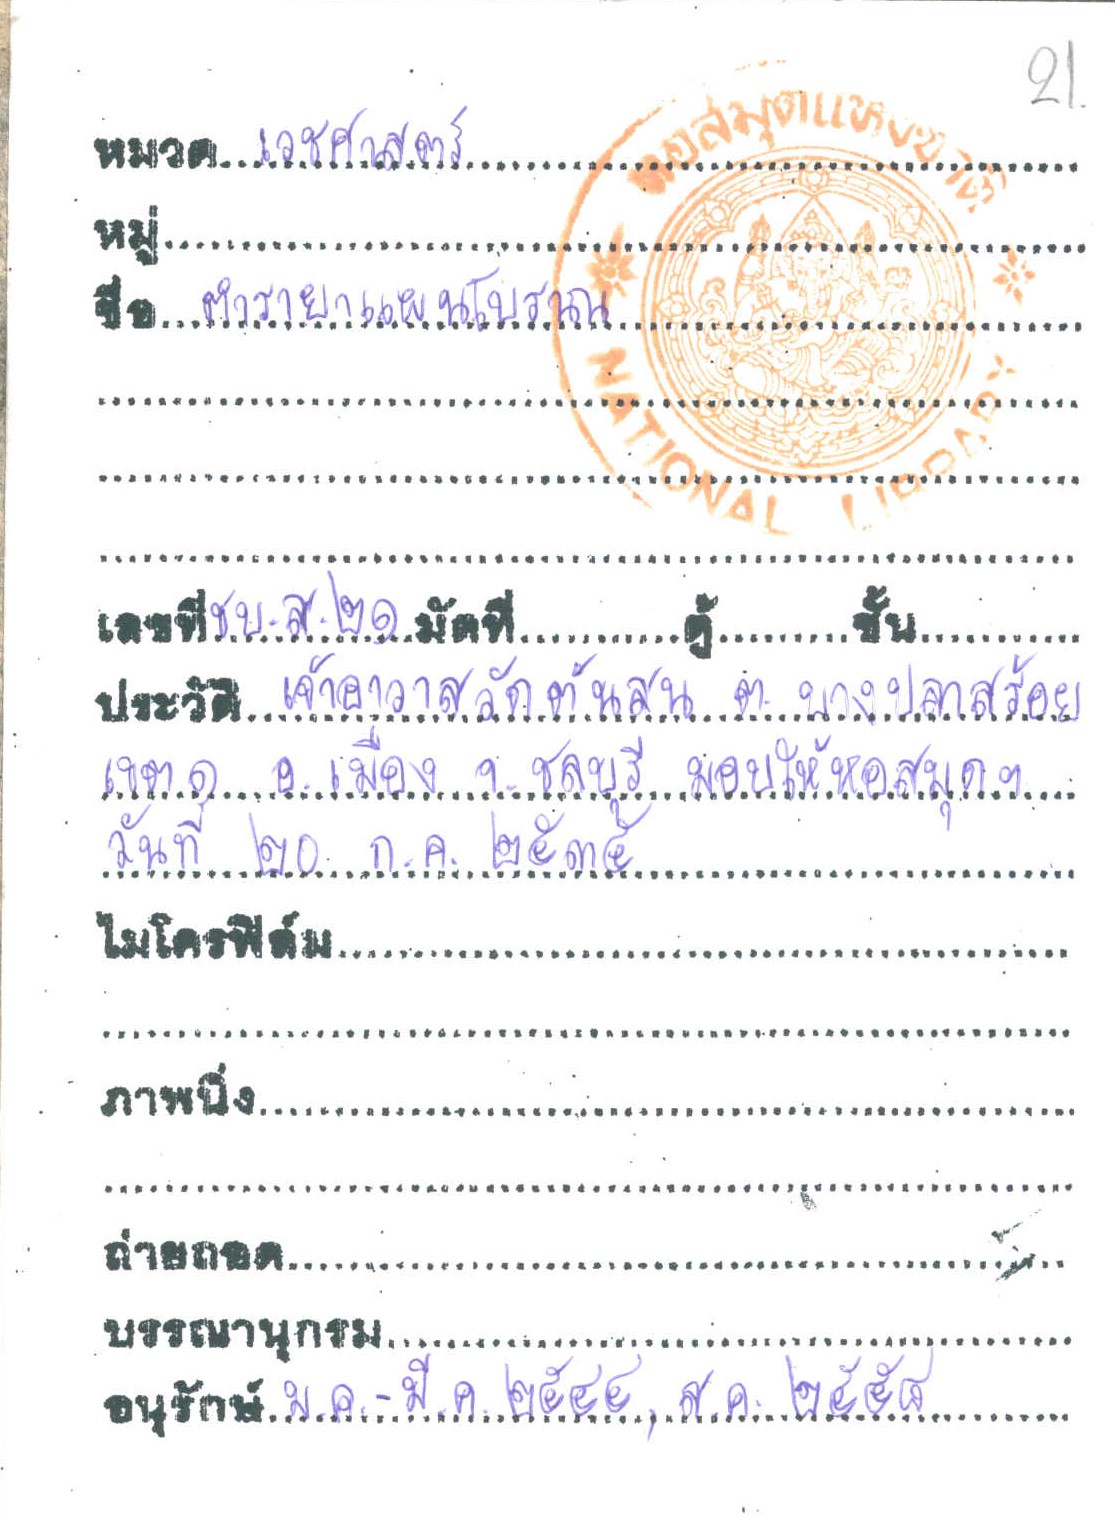 21.
หอสมุดแห่งชาติ
NATIONAL LIBRARY
หมวด เวชศาสตร์
หมู่
ชื่อ ตำรายาแผนโบราณ
เลขที่ ชบ.ส.๒๑ มัดที่ ตู้ ชั้น
ประวัติ เจ้าอาวาสวัดต้นสน ต. บางปลาสร้อย
เขต ๑ อ. เมือง จ. ชลบุรี มอบให้หอสมุดฯ
วันที่ ๒๐ ก.ค. ๒๕๓๕
ไมโครฟิล์ม
ภาพนิ่ง
ถ่ายถอด
บรรณานุกรม
อนุรักษ์ ม.ค.-มี.ค. ๒๕๔๔, ส.ค. ๒๕๕๘